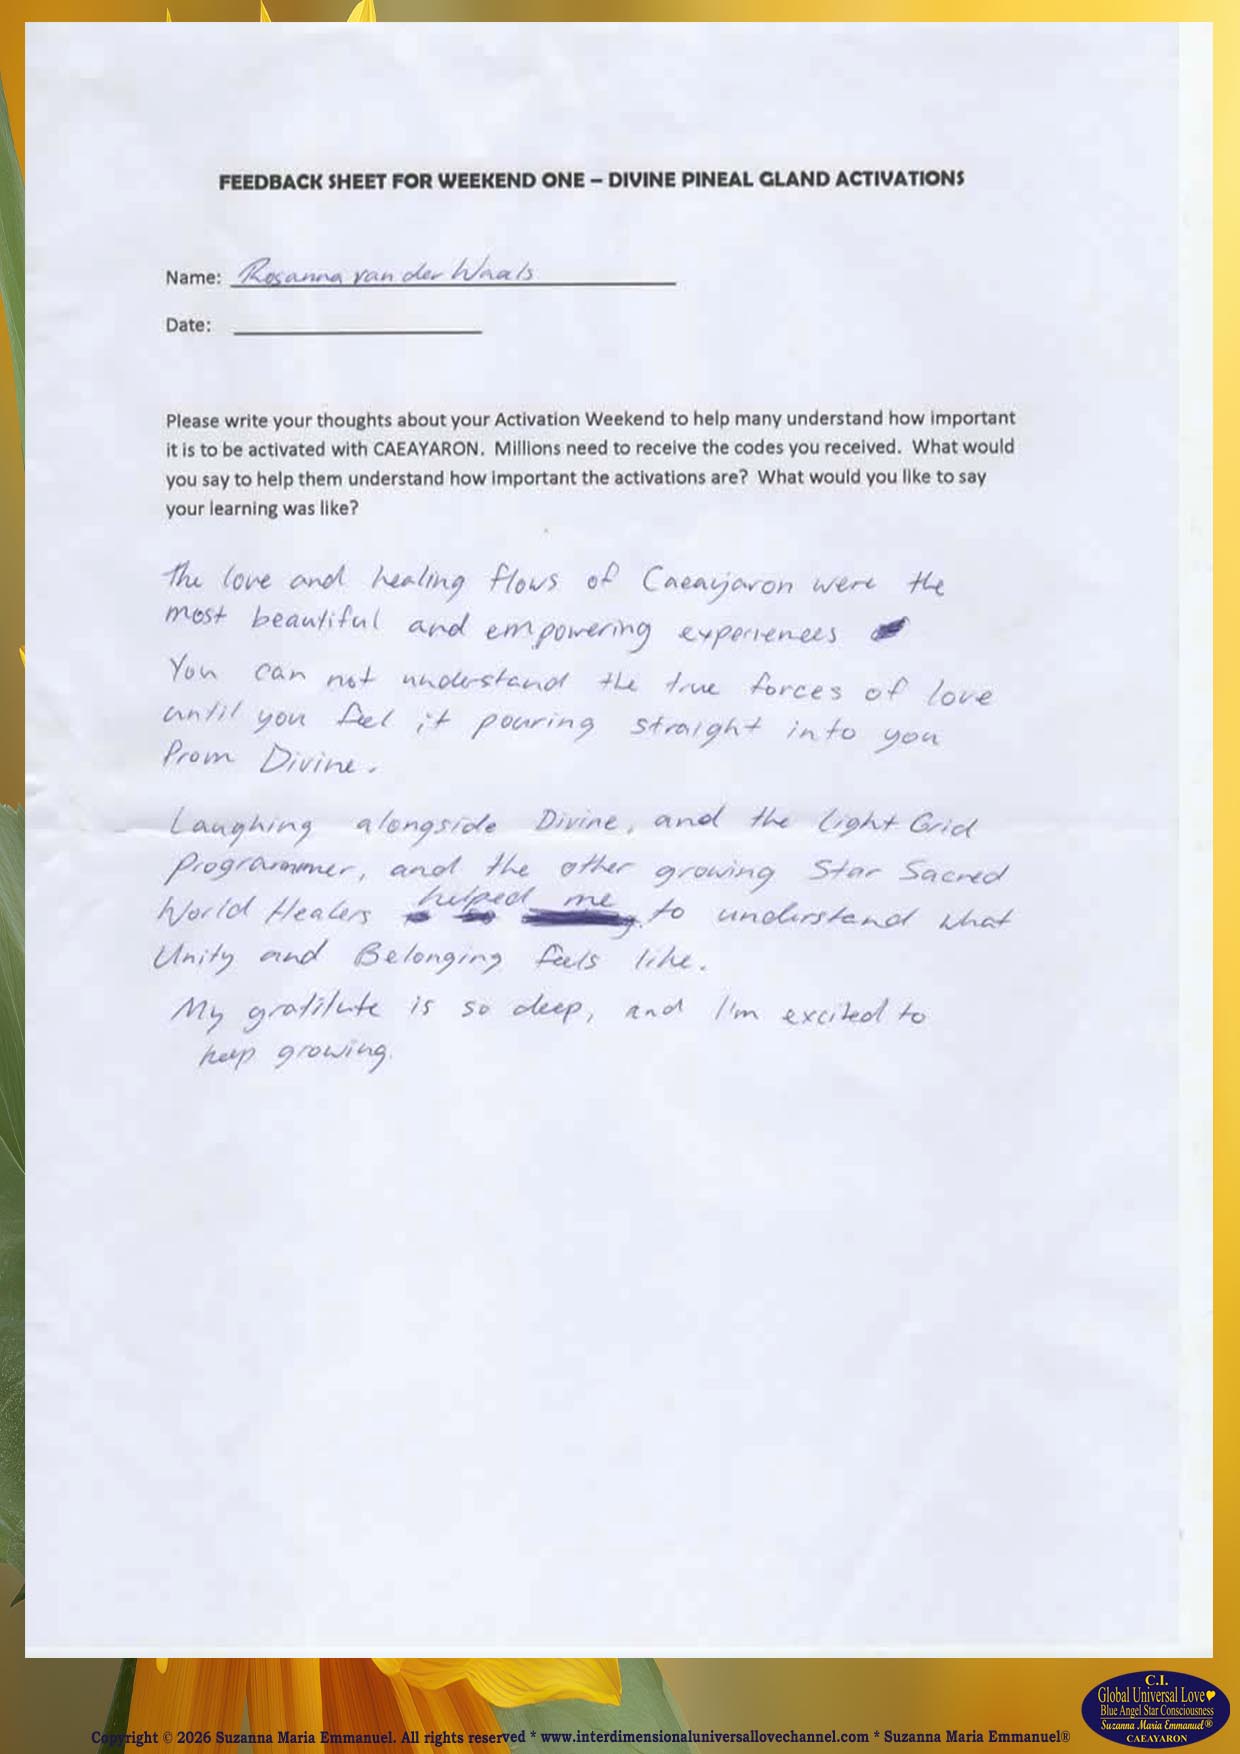 FEEDBACK SHEET FOR WEEKEND ONE – DIVINE PINEAL GLAND ACTIVATIONS
Name: Rosanna van der Waals
Date:
Please write your thoughts about your Activation Weekend to help many understand how important
it is to be activated with CAEAYARON. Millions need to receive the codes you received. What would
you say to help them understand how important the activations are? What would you like to say
your learning was like?
The love and healing flows of Caeayaron were the
most beautiful and empowering experiences
You can not understand the true forces of love
until you feel it pouring straight into you
from Divine.
Laughing alongside Divine, and the Light Grid
Programmer, and the other growing Star Sacred
World Healers helped me to understand what
Unity and Belonging feels like.
My gratitute is so deep, and I'm excited to
keep growing.
C.I.
Global Universal Love
Blue Angel Star Consciousness
Suzanna Maria Emmanuel®
CAEAYARON
Copyright © 2026 Suzanna Maria Emmanuel. All rights reserved * www.interdimensionaluniversallovechannel.com * Suzanna Maria Emmanuel®